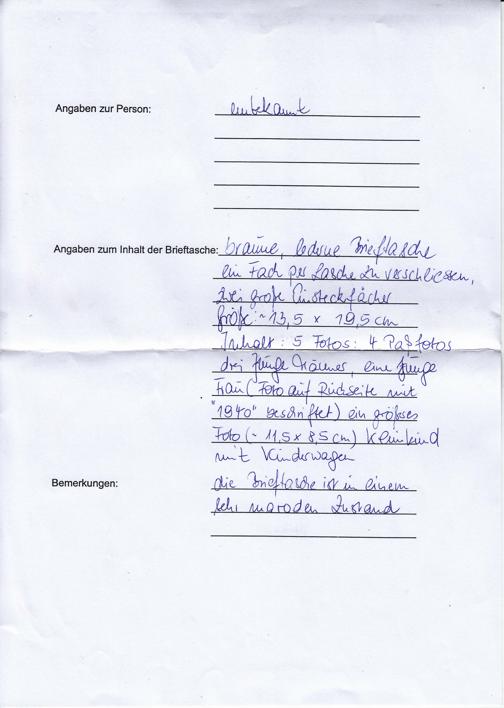 Angaben zur Person: unbekannt
Angaben zum Inhalt der Brieftasche: braune, lederne Brieftasche
ein Fach per Lasche zu verschliessen,
zwei große Einsteckfächer
Größe: ~ 13,5 x 19,5 cm
Inhalt: 5 Fotos: 4 Paßfotos
drei junge Männer, eine junge
Frau (Foto auf Rückseite mit
"1940" beschriftet) ein größeres
Foto (~ 11,5 x 8,5 cm) Kleinkind
mit Kinderwagen
Bemerkungen: die Brieftasche ist in einem
sehr maroden Zustand